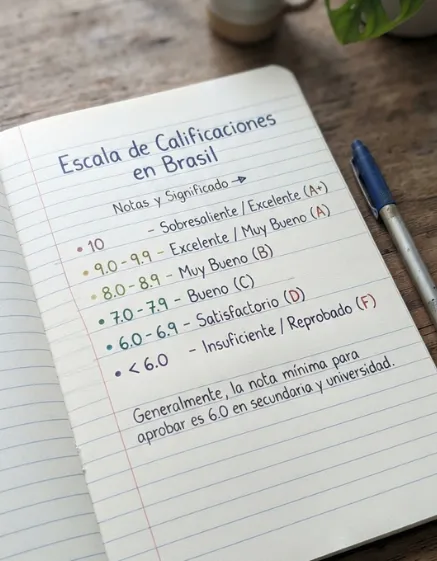 Escala de Calificaciones
en Brasil
Notas y Significado →
• 10 - Sobresaliente / Excelente (A+)
• 9.0 - 9.9 - Excelente / Muy Bueno (A)
• 8.0 - 8.9 - Muy Bueno (B)
• 7.0 - 7.9 - Bueno (C)
• 6.0 - 6.9 - Satisfactorio (D)
• < 6.0 - Insuficiente / Reprobado (F)
Generalmente, la nota mínima para
aprobar es 6.0 en secundaria y universidad.